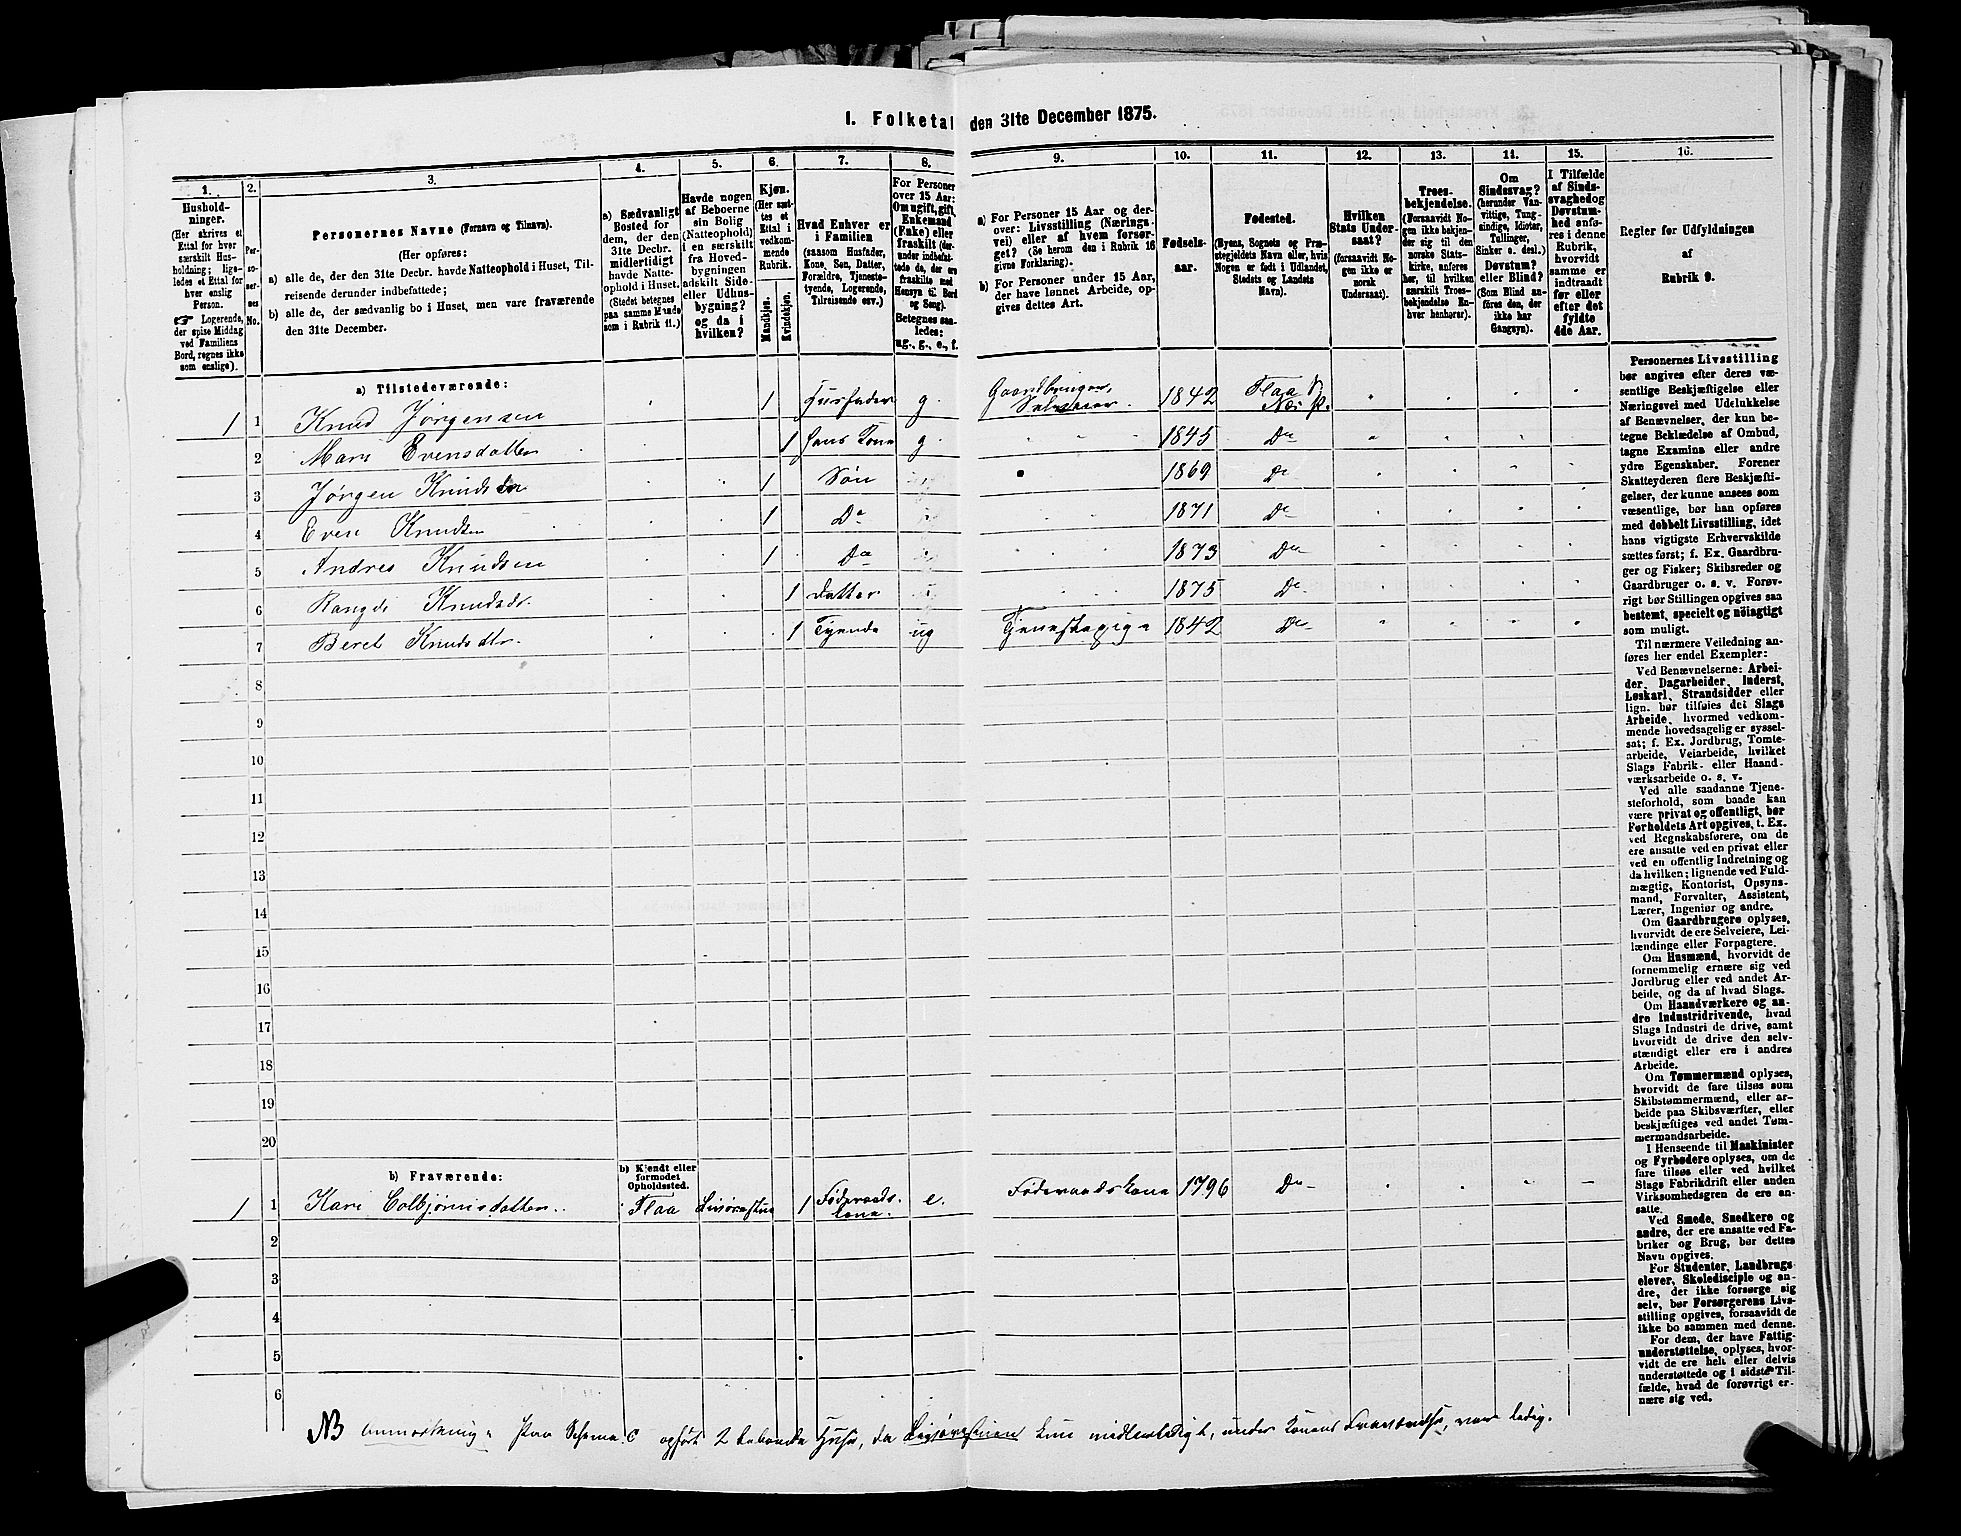 I. Folketal den 31te December 1875.
1.
Hushold-
ninger.
(Her skrives et
Ettal for hver
særskilt Hus-
holdning; lige-
ledes et Ettal for
hver enslig
Person.
☞ Logerende,
der spise Middag
ved Familiens
Bord, regnes ikke
som enslige).
2.
Per-
so-
ner-
nes
No.
3.
Personernes Navne (Fornavn og Tilnavn).
(Her opføres:
a) alle de, der den 31te Decbr. havde Natteophold i Huset, Til-
reisende derunder indbefattede;
b) alle de, der sædvanlig bo i Huset, men vare fraværende
den 31te December.
4.
a) Sædvanligt
Bosted for
dem, der den
31te Decbr.
midlertidigt
havde Natte-
ophold i Huset.
(Stedet betegnes
paa samme Maade
som i Rubrik 11.)
5.
Havde nogen
af Beboerne
sin Bolig
(Natteophold)
i en særskilt
fra Hoved-
bygningen
adskilt Side-
eller Udhus-
bygning?
og da i
hvilken?
6.
Kjøn.
(Her sæt-
tes et
Ettal i
vedkom-
mende
Rubrik.
Mandkjøn.
Kvindekjøn.
7.
Hvad Enhver er
i Familien
(saasom Husfader,
Kone, Søn, Datter,
Forældre, Tjeneste-
tyende, Logerende,
Tilreisende osv.)
8.
For Personer
over 15 Aar:
Om ugift, gift,
Enkemand
(Enke) eller
fraskilt (der-
under indbefat-
tede de, der ere
fraskilte med
Hensyn til Bord
og Seng).
Betegnes saa-
ledes:
ug., g., e., f.
9.
a) For Personer 15 Aar og der-
over: Livsstilling (Nærings-
vei) eller af hvem forsør-
get? (Se herom den i Rubrik 16
givne Forklaring).
b) For Personer under 15 Aar,
der have lønnet Arbeide, op-
gives dettes Art.
10.
Fødsels-
aar.
11.
Fødested.
(Byens, Sognets og Præ-
stegjeldets Navn eller, hvis
Nogen er født i Udlandet,
Stedets og Landets
Navn).
12.
Hvilken
Stats Under-
saat?
(forsaavidt No-
gen ikke er
norsk
Undersaat).
13.
Troes-
bekjendelse.
(Forsaavidt No-
gen ikke bekjen-
der sig til den
norske Stats-
kirke, anføres
her, til hvilken
særskilt Troes-
bekjendelse En-
hver henhører).
14.
Om
Sindssvag?
(herunder Van-
vittige, Tung-
sindige, Idioter,
Tullinger,
Sinker o. desl.)
Døvstum?
eller Blind?
(Som Blind an-
føres den, der
ikke har
Gangsyn).
15.
I Tilfælde
af Sinds-
svaghed og
Døvstum-
hed anfø-
res i denne
Rubrik,
hvorvidt
samme er
indtraadt
før eller
efter det
fyldte
4de Aar.
16.
Regler for Udfyldningen
af
Rubrik 9.
a) Tilstedeværende:
1 1 Knud Jørgensen 1 Husfader g. Gaardbruger, Selveier. 1842 Flaa S. Næs P.
2 Mari Evensdatter 1 hans Kone g 1845 Do
3 Jørgen Knudsen 1 Søn 1869 Do
4 Even Knudsen 1 Do 1871 Do
5 Andres Knudsen 1 Do 1873 Do
6 Rangdi Knudsdr. 1 Datter 1875 Do
7 Beret Knudsdtr. 1 Tyende ug Tjenestepige 1842 Do
8
9
10
11
12
13
14
15
16
17
18
19
20
b) Fraværende:
b) Kjendt eller
formodet
Opholdssted.
1 1 Kari Colbjørnsdatter. Flaa 1 Føderaads-kone. e. Føderaadskone 1796 Do
2
3
4
5
6
NB anmærkning. Paa Schema C opført 2 beboede Huse, da kun midlertidigt, under Konens Fraværelse, var ledig.
Personernes Livsstilling
bør angives efter deres væ-
sentlige Beskjæftigelse eller
Næringsvei med Udelukkelse
af Benævnelser, der kun be-
tegne Beklædelse af Ombud,
tagne Examina eller andre
ydre Egenskaber. Forener
Skatteyderen flere Beskjæfti-
gelser, der kunne ansees som
væsentlige, bør han opføres
med dobbelt Livsstilling, idet
hans vigtigste Erhvervskilde
sættes først; f. Ex. Gaardbru-
ger og Fisker; Skibsreder og
Gaardbruger o. s. v. Forøv-
rigt bør Stillingen opgives saa
bestemt, specielt og nöiagtigt
som muligt.
Til nærmere Veiledning an-
føres her endel Exempler:
Ved Benævnelserne: Arbei-
der, Dagarbeider, Inderst,
Løskarl, Strandsidder eller
lign. bør tilføies det Slags
Arbeide, hvormed vedkom-
mende hovedsagelig er syssel-
sat; f. Ex. Jordbrug, Tomte-
arbeide, Veiarbeide, hvilket
Slags Fabrik- eller Haand-
værksarbeide o. s. v.
Ved alle saadanne Tjene-
steforhold, som baade kan
være privat og offentligt, bør
Forholdets Art opgives, t. Ex.
ved Regnskabsførere, om de
ere ansatte ved en privat eller
ved en offentlig Indretning og
da hvilken; lignende ved Fuld-
mægtig, Kontorist, Opsyns-
mand, Forvalter, Assistent,
Lærer, Ingeniør og andre.
Om Gaardbrugere oplyses,
hvorvidt de ere Selveiere, Lei-
lændinge eller Forpagtere.
Om Husmænd, hvorvidt de
fornemmelig ernære sig ved
Jordbrug eller ved andet Ar-
beide, og da af hvad Slags.
Om Haandværkere og an-
dre Industridrivende, hvad
Slags Industri de drive, samt
hvorvidt de drive den selv-
stændigt eller ere i andres
Arbeide.
Om Tømmermænd oplyses,
hvorvidt de fare tilsøs som
Skibstømmermænd, eller ar-
beide paa Skibsværfter, eller
beskjæftiges ved andet Tøm-
mermandsarbeide.
I Henseende til Maskinister
og Fyrbødere oplyses, om de
fare tilsøs eller ved hvilket
Slags Fabrikdrift eller anden
Virksomhedsgren de ere an-
satte.
Ved Smede, Snedkere og
andre, der ere ansatte ved Fa-
briker og Brug, bør dettes
Navn opgives.
For Studenter, Landbrugs-
elever, Skoledisciple og an-
dre, der ikke forsørge sig
selv, bør Forsørgerens Livs-
stilling opgives, forsaavidt de
ikke bo sammen med denne.
For dem, der have Fattig-
understøttelse, oplyses, hvor-
vidt de ere helt eller delvis
understøttede og i sidste Til-
fælde, hvad de forøvrigt er-
nære sig ved.